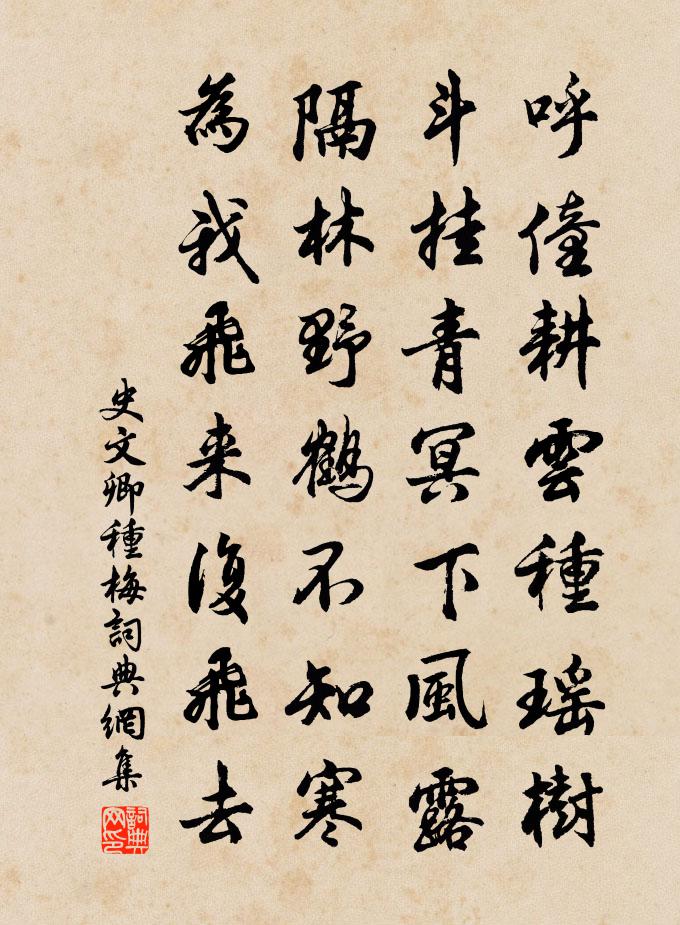 呼僮耕雲種瑶樹
斗挂青冥下風露
隔林野鶴不知寒
為我飛来復飛去
史文卿種梅詞典網集
詞典网印